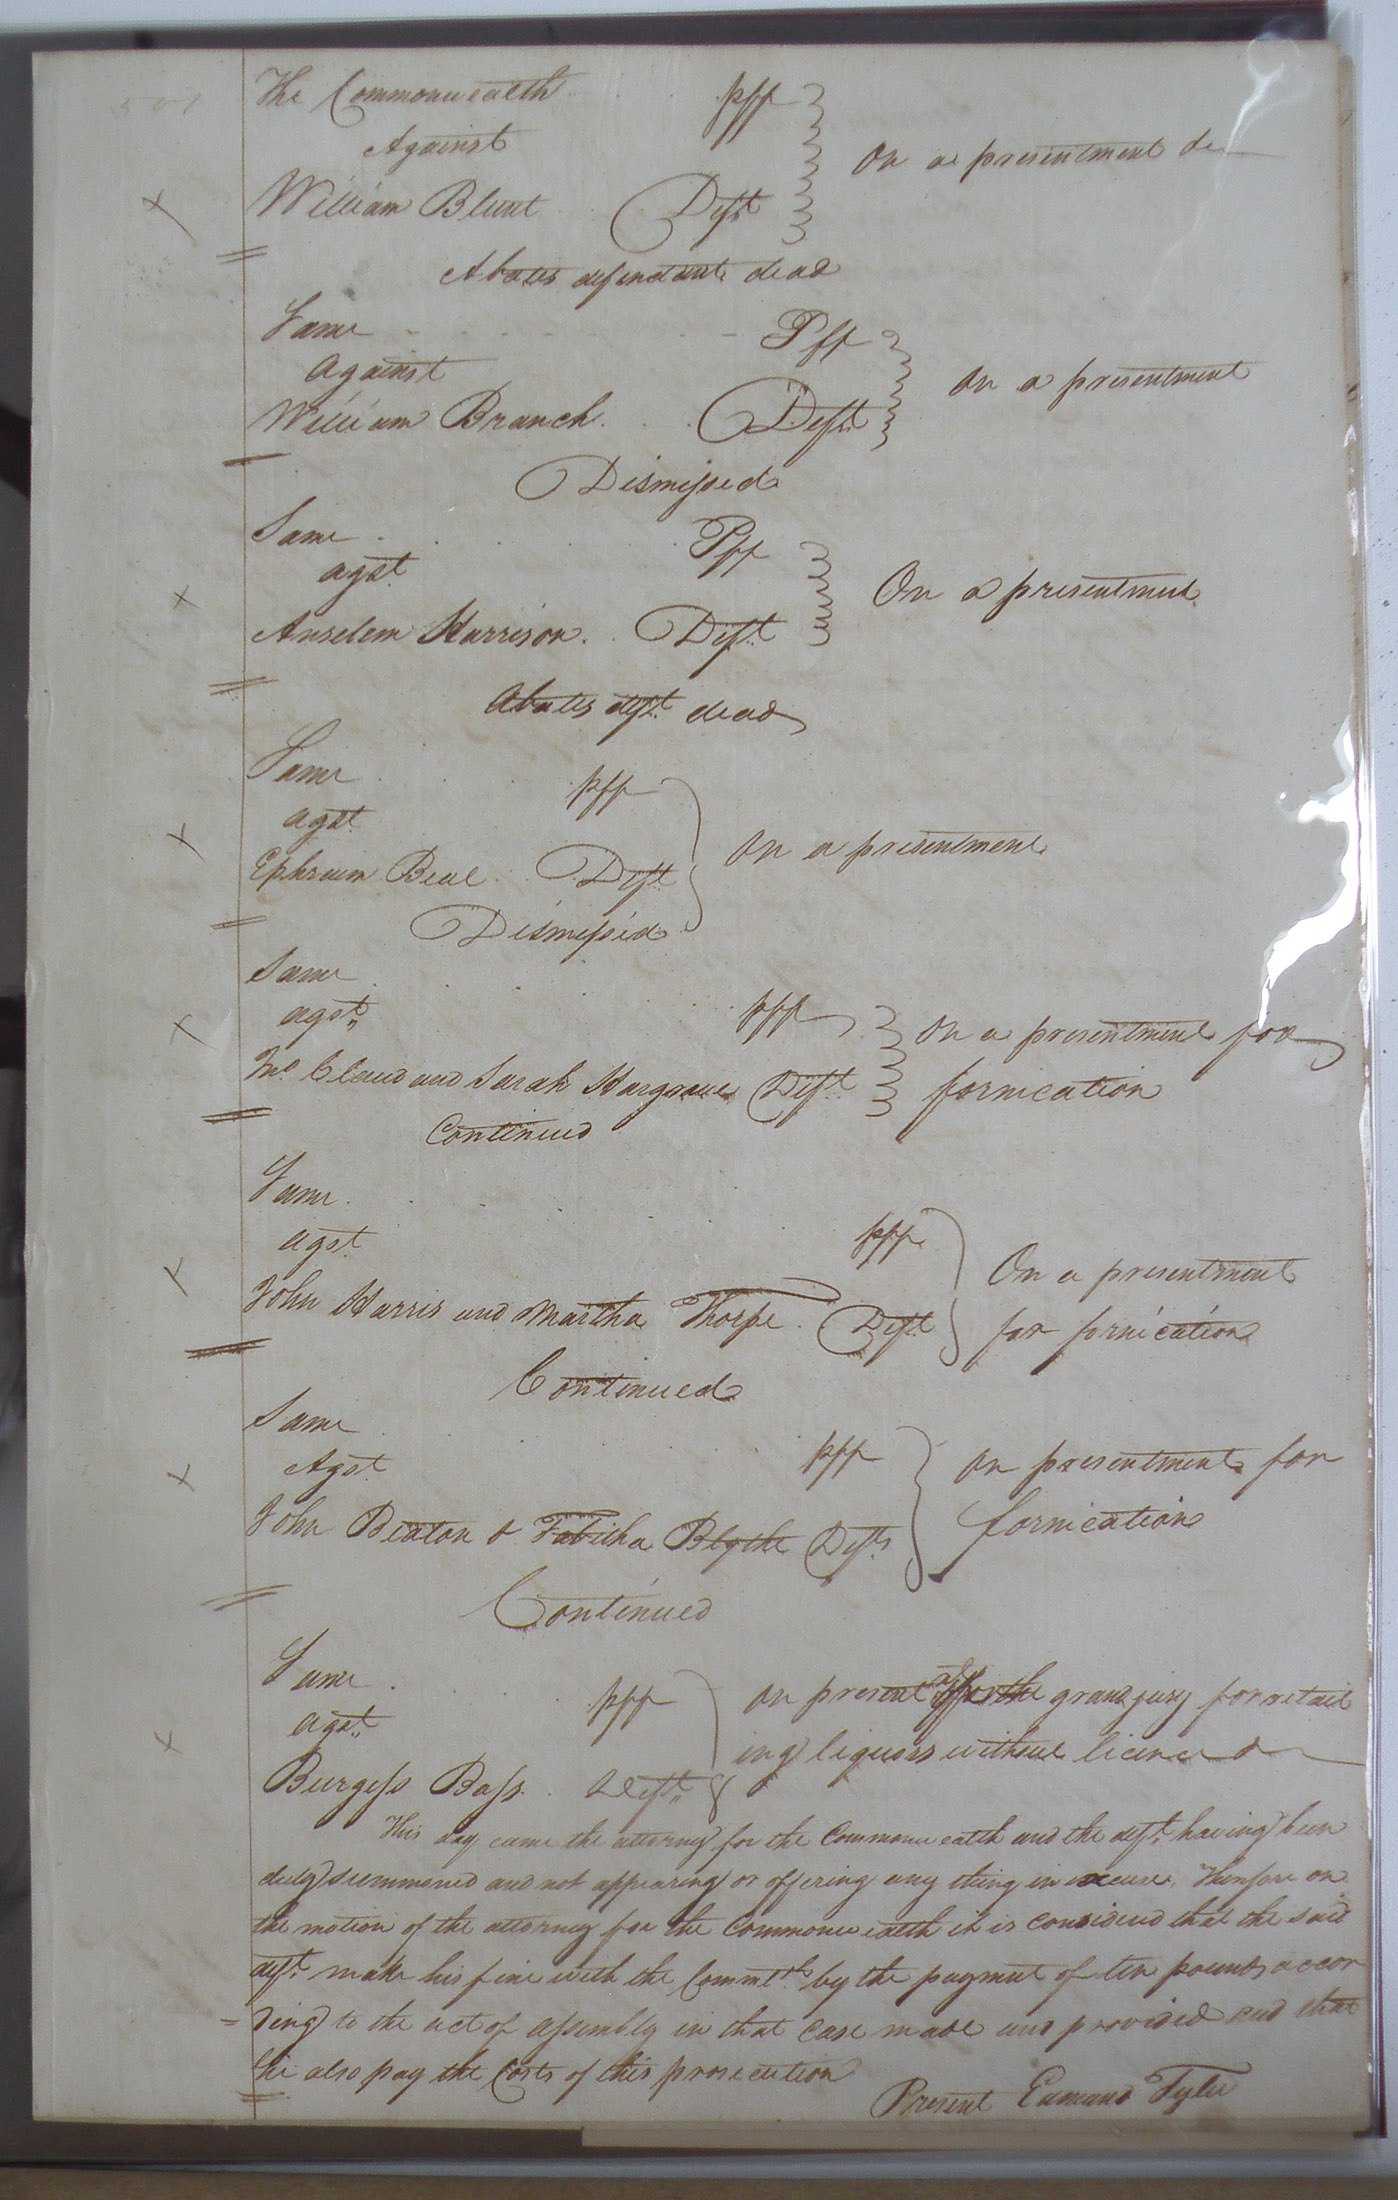 The Commonwealth . . . plff
Against
On a presentment &c
William Blunt . . Deft
Abates defendant dead
Same - - - - - - - Plff
against
On a presentment
William Branch . . . Deft
Dismissed
Same . . . . . Plff
agst
On a presentment
Anselem Harrison . . Deft
Abates deft dead
Same . . . plff
agst
On a presentment
Ephraim Beal . . Deft
Dismissed
Same . . . . . plff
agst
On a presentment for
Claud and Sarah Hargrave Deft
fornication
Continued
Same . . . . . plff
agst
On a presentment
John Harris and Martha Thorpe . . Deft
for fornication
Continued
Same . . . . . plff
Agst
On presentment for
John Deaton & Tabitha Blythe Defts
fornication
Continued
Same . . . . plff
On present of the grand jury for retail
agst
ing liquors without licence &
Burgess Bass . . Deft
This day came the attorney for the Commonwealth and the deft having been
duly summoned and not appearing or offering any thing in excuse, Therefore on
the motion of the attorney for the Commonwealth it is considered that the said
deft make his fine with the Commlth by the payment of ten pounds accor
=ding to the act of assembly in that case made and provided and that
he also pay the Costs of this prosecution
Present Edmund Tyler